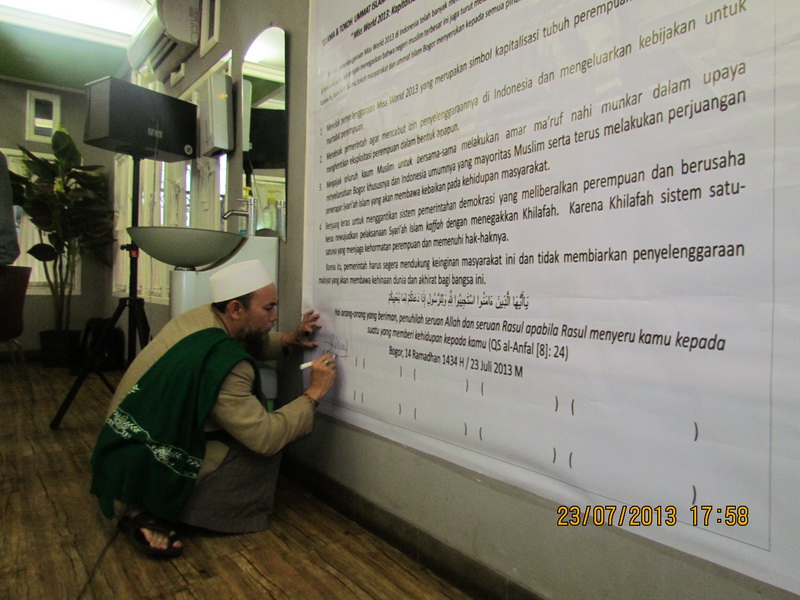 & TOKOH UMMAT ISLAM
" Miss World 2013: Kapitalisasi
Miss World 2013 di Indonesia telah banyak
1. Menolak penyelenggaraan Miss World 2013 yang merupakan simbol kapitalisasi tubuh perempuan
martabat perempuan.
2. Mendesak pemerintah agar mencabut izin penyelenggaraannya di Indonesia dan mengeluarkan kebijakan untuk
menghentikan eksploitasi perempuan dalam bentuk apapun.
3. Mengajak seluruh kaum Muslim untuk bersama-sama melakukan amar ma'ruf nahi munkar dalam upaya
menyelamatkan Bogor khususnya dan Indonesia umumnya yang mayoritas Muslim serta terus melakukan perjuangan
penerapan Syari'ah Islam yang akan membawa kebaikan pada kehidupan masyarakat.
4. Berjuang keras untuk menggantikan sistem pemerintahan demokrasi yang meliberalkan perempuan dan berusaha
keras mewujudkan pelaksanaan Syari'ah Islam kaffah dengan menegakkan Khilafah. Karena Khilafah sistem satu-
satunya yang menjaga kehormatan perempuan dan memenuhi hak-haknya.
Karena itu, pemerintah harus segera mendukung keinginan masyarakat ini dan tidak membiarkan penyelenggaraan
maksiyat yang akan membawa kehinaan dunia dan akhirat bagi bangsa ini.
يَاأَيُّهَا الَّذِينَ ءَامَنُوا اسْتَجِيبُوا لِلَّهِ وَلِلرَّسُولِ إِذَا دَعَاكُمْ لِمَا يُحْيِيكُمْ
Hai orang-orang yang beriman, penuhilah seruan Allah dan seruan Rasul apabila Rasul menyeru kamu kepada
suatu yang memberi kehidupan kepada kamu (QS al-Anfal [8]: 24)
Bogor, 14 Ramadhan 1434 H / 23 Juli 2013 M
23/07/2013 17:58